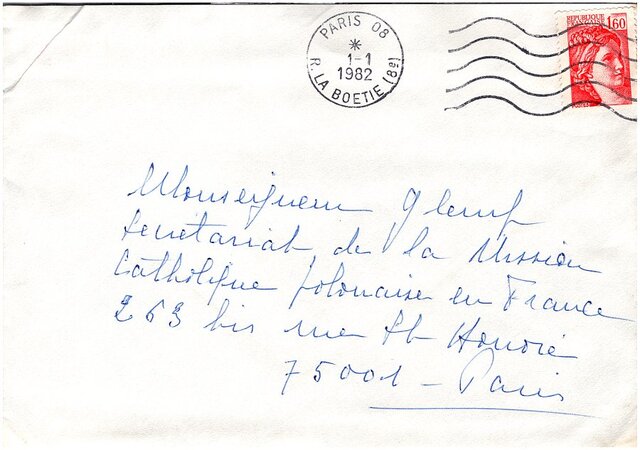 PARIS 08
1-1
1982
R. LA BOETIE (8e)
REPUBLIQUE FRANÇAISE 1,60
Monseigneur Glemp
Secretariat de la Mission
Catholique polonaise en France
263 bis rue St Honoré
75001 - Paris